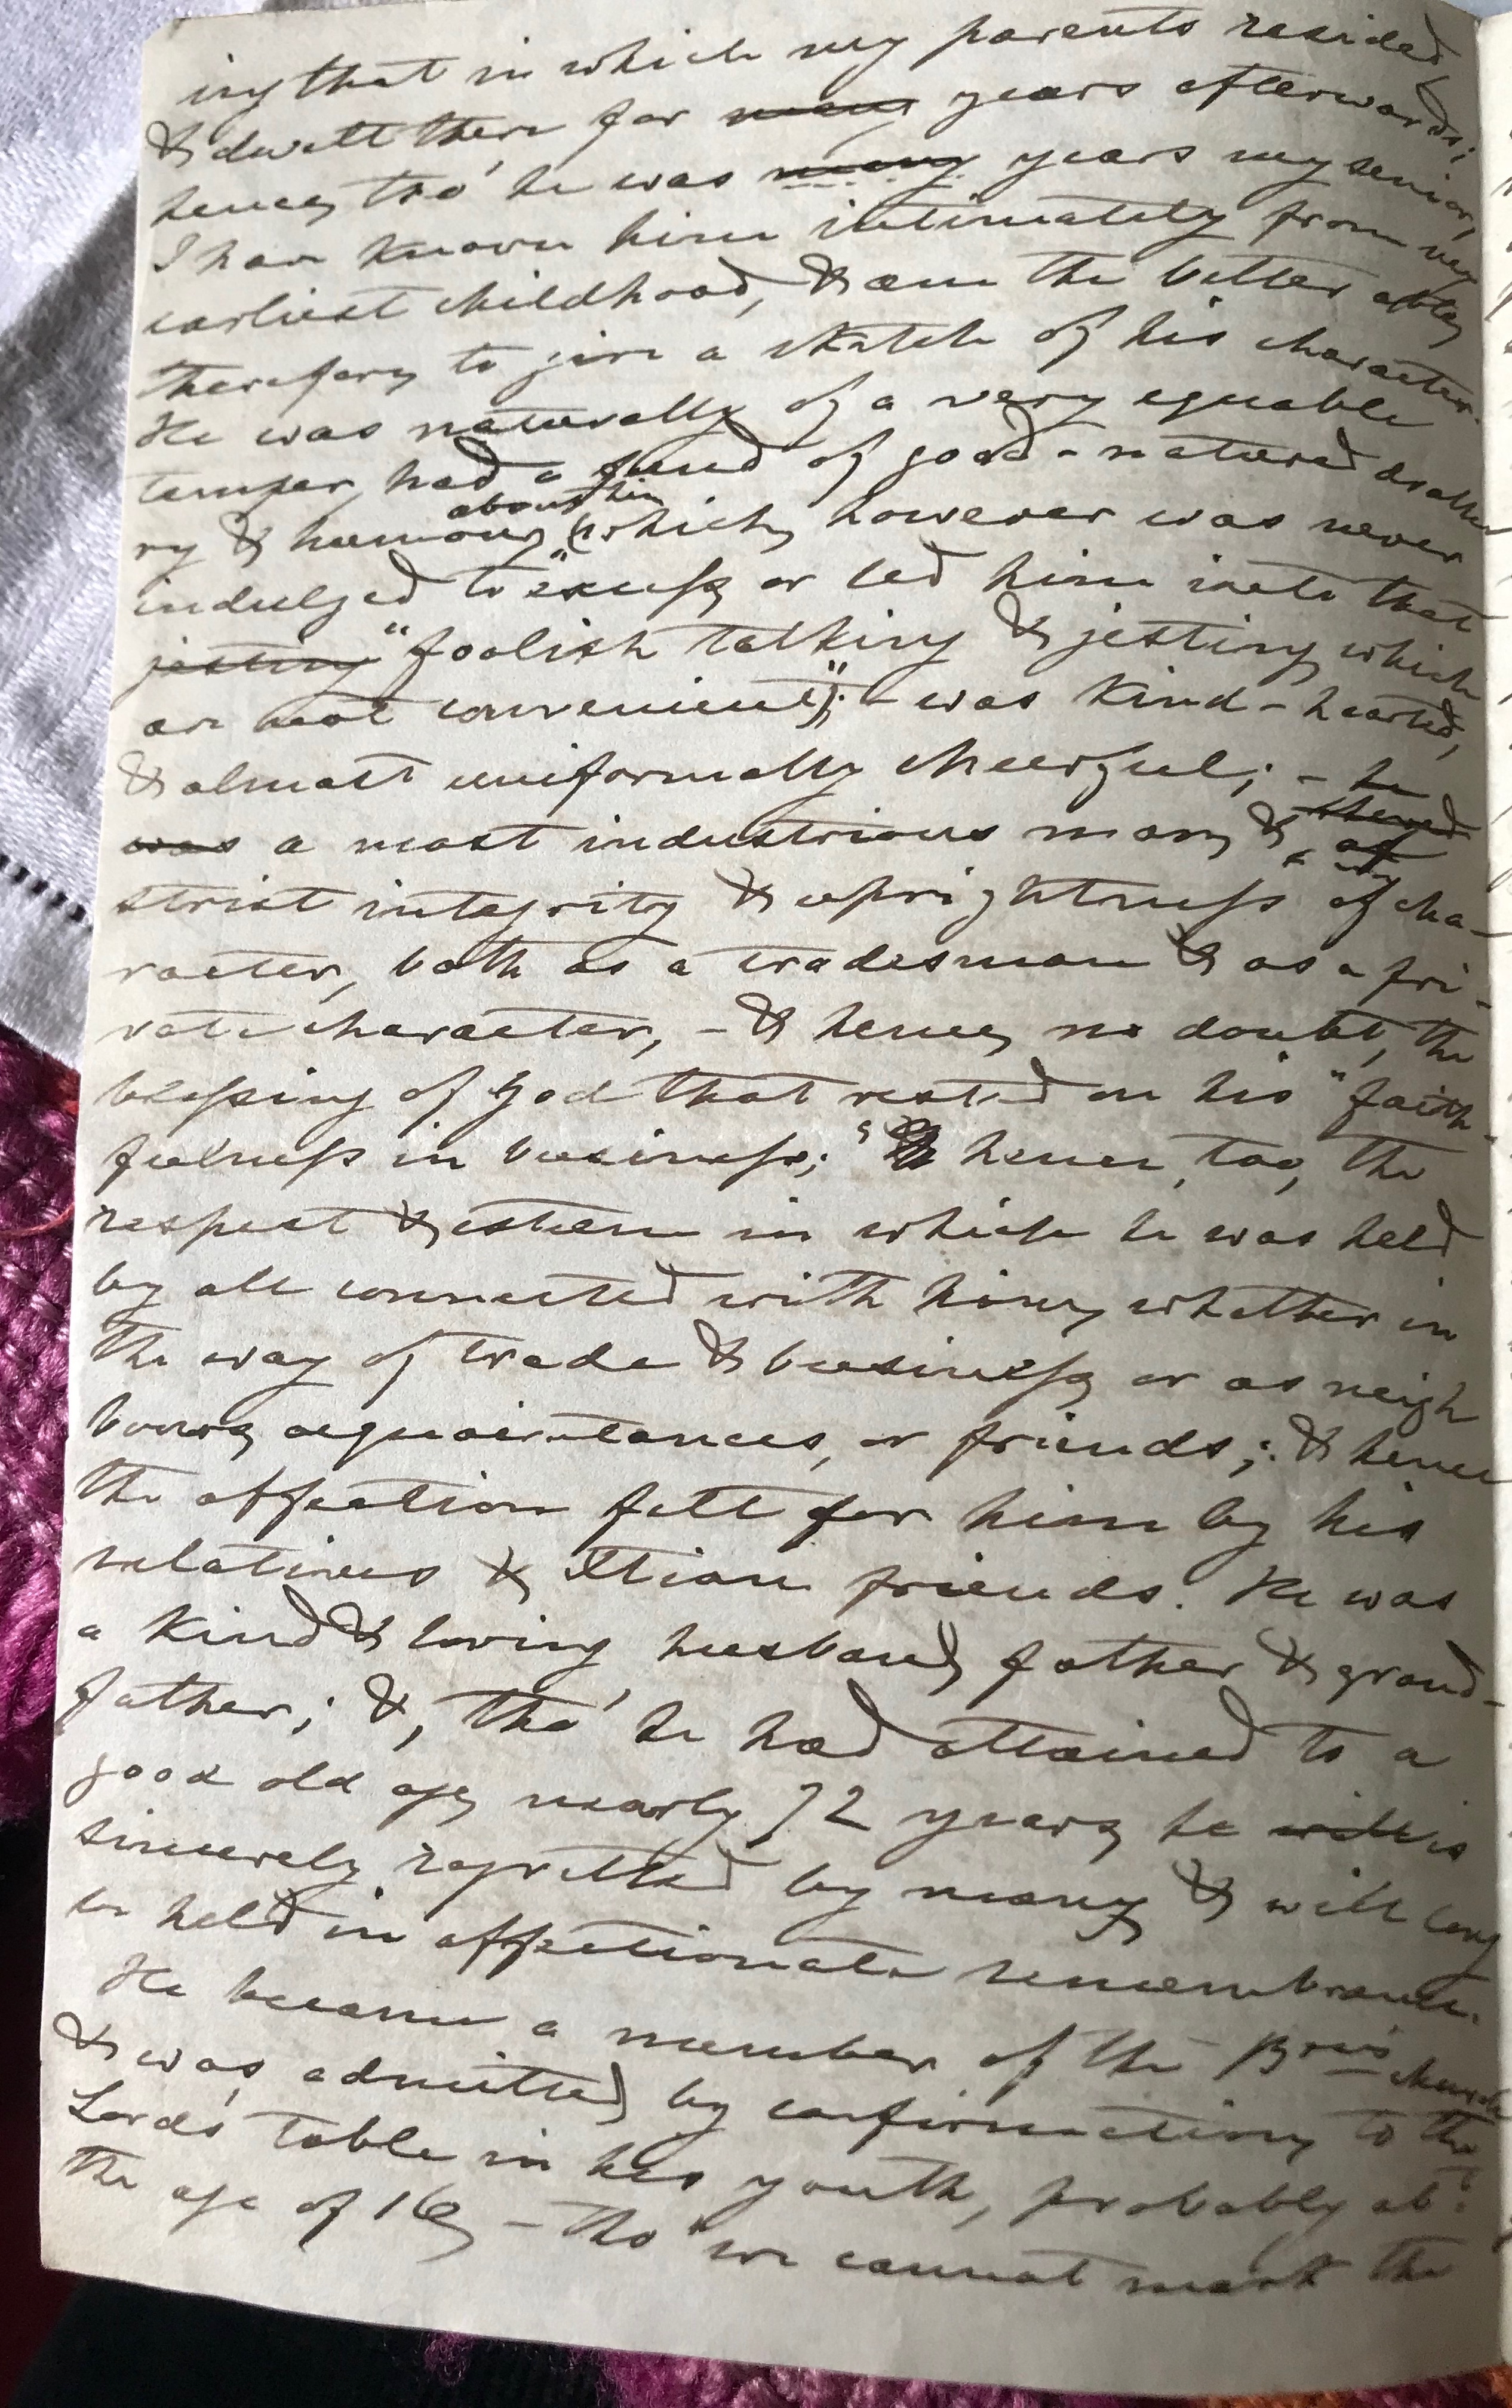 ing that in which my parents resided,
& dwelt there for many years afterwards;
hence, tho' he was many years my senior,
I have known him intimately from my
earliest childhood, & am the better able,
therefore, to give a sketch of his character.
He was naturally of a very equable
temper, had a fund of good-natured drolle
ry & humour about him (which, however was never
indulged to "excess, or led him into that
jesting "foolish talking & jesting, which
are not convenient"); - was kind-hearted,
& almost uniformally cheerful; - he
was a most industrious man, & shewed of
strict integrity & uprightness of cha-
racter, both as a tradesman & as a pri-
vate character, - & hence, no doubt, the
blessing of God that rested on his "faith-
fulness in business;" & hence, too, the
respect & esteem in which he was held
by all connected with him, whether in
the way of trade & business, or as neigh
bours, acquaintances, or friends; & hence
the affection felt for him by his
relatives & Xtian friends. He was
a kind & loving husband, father & grand-
father; &, tho' he had attained to a
good old age, nearly 72 years, he will is
sincerely regretted by many & will long
be held in affectionate remembrance.
He became a member of the Brns church
& was admitted, by confirmation, to the
Lord's table in his youth, probably abt
the age of 16, - tho' we cannot mark the